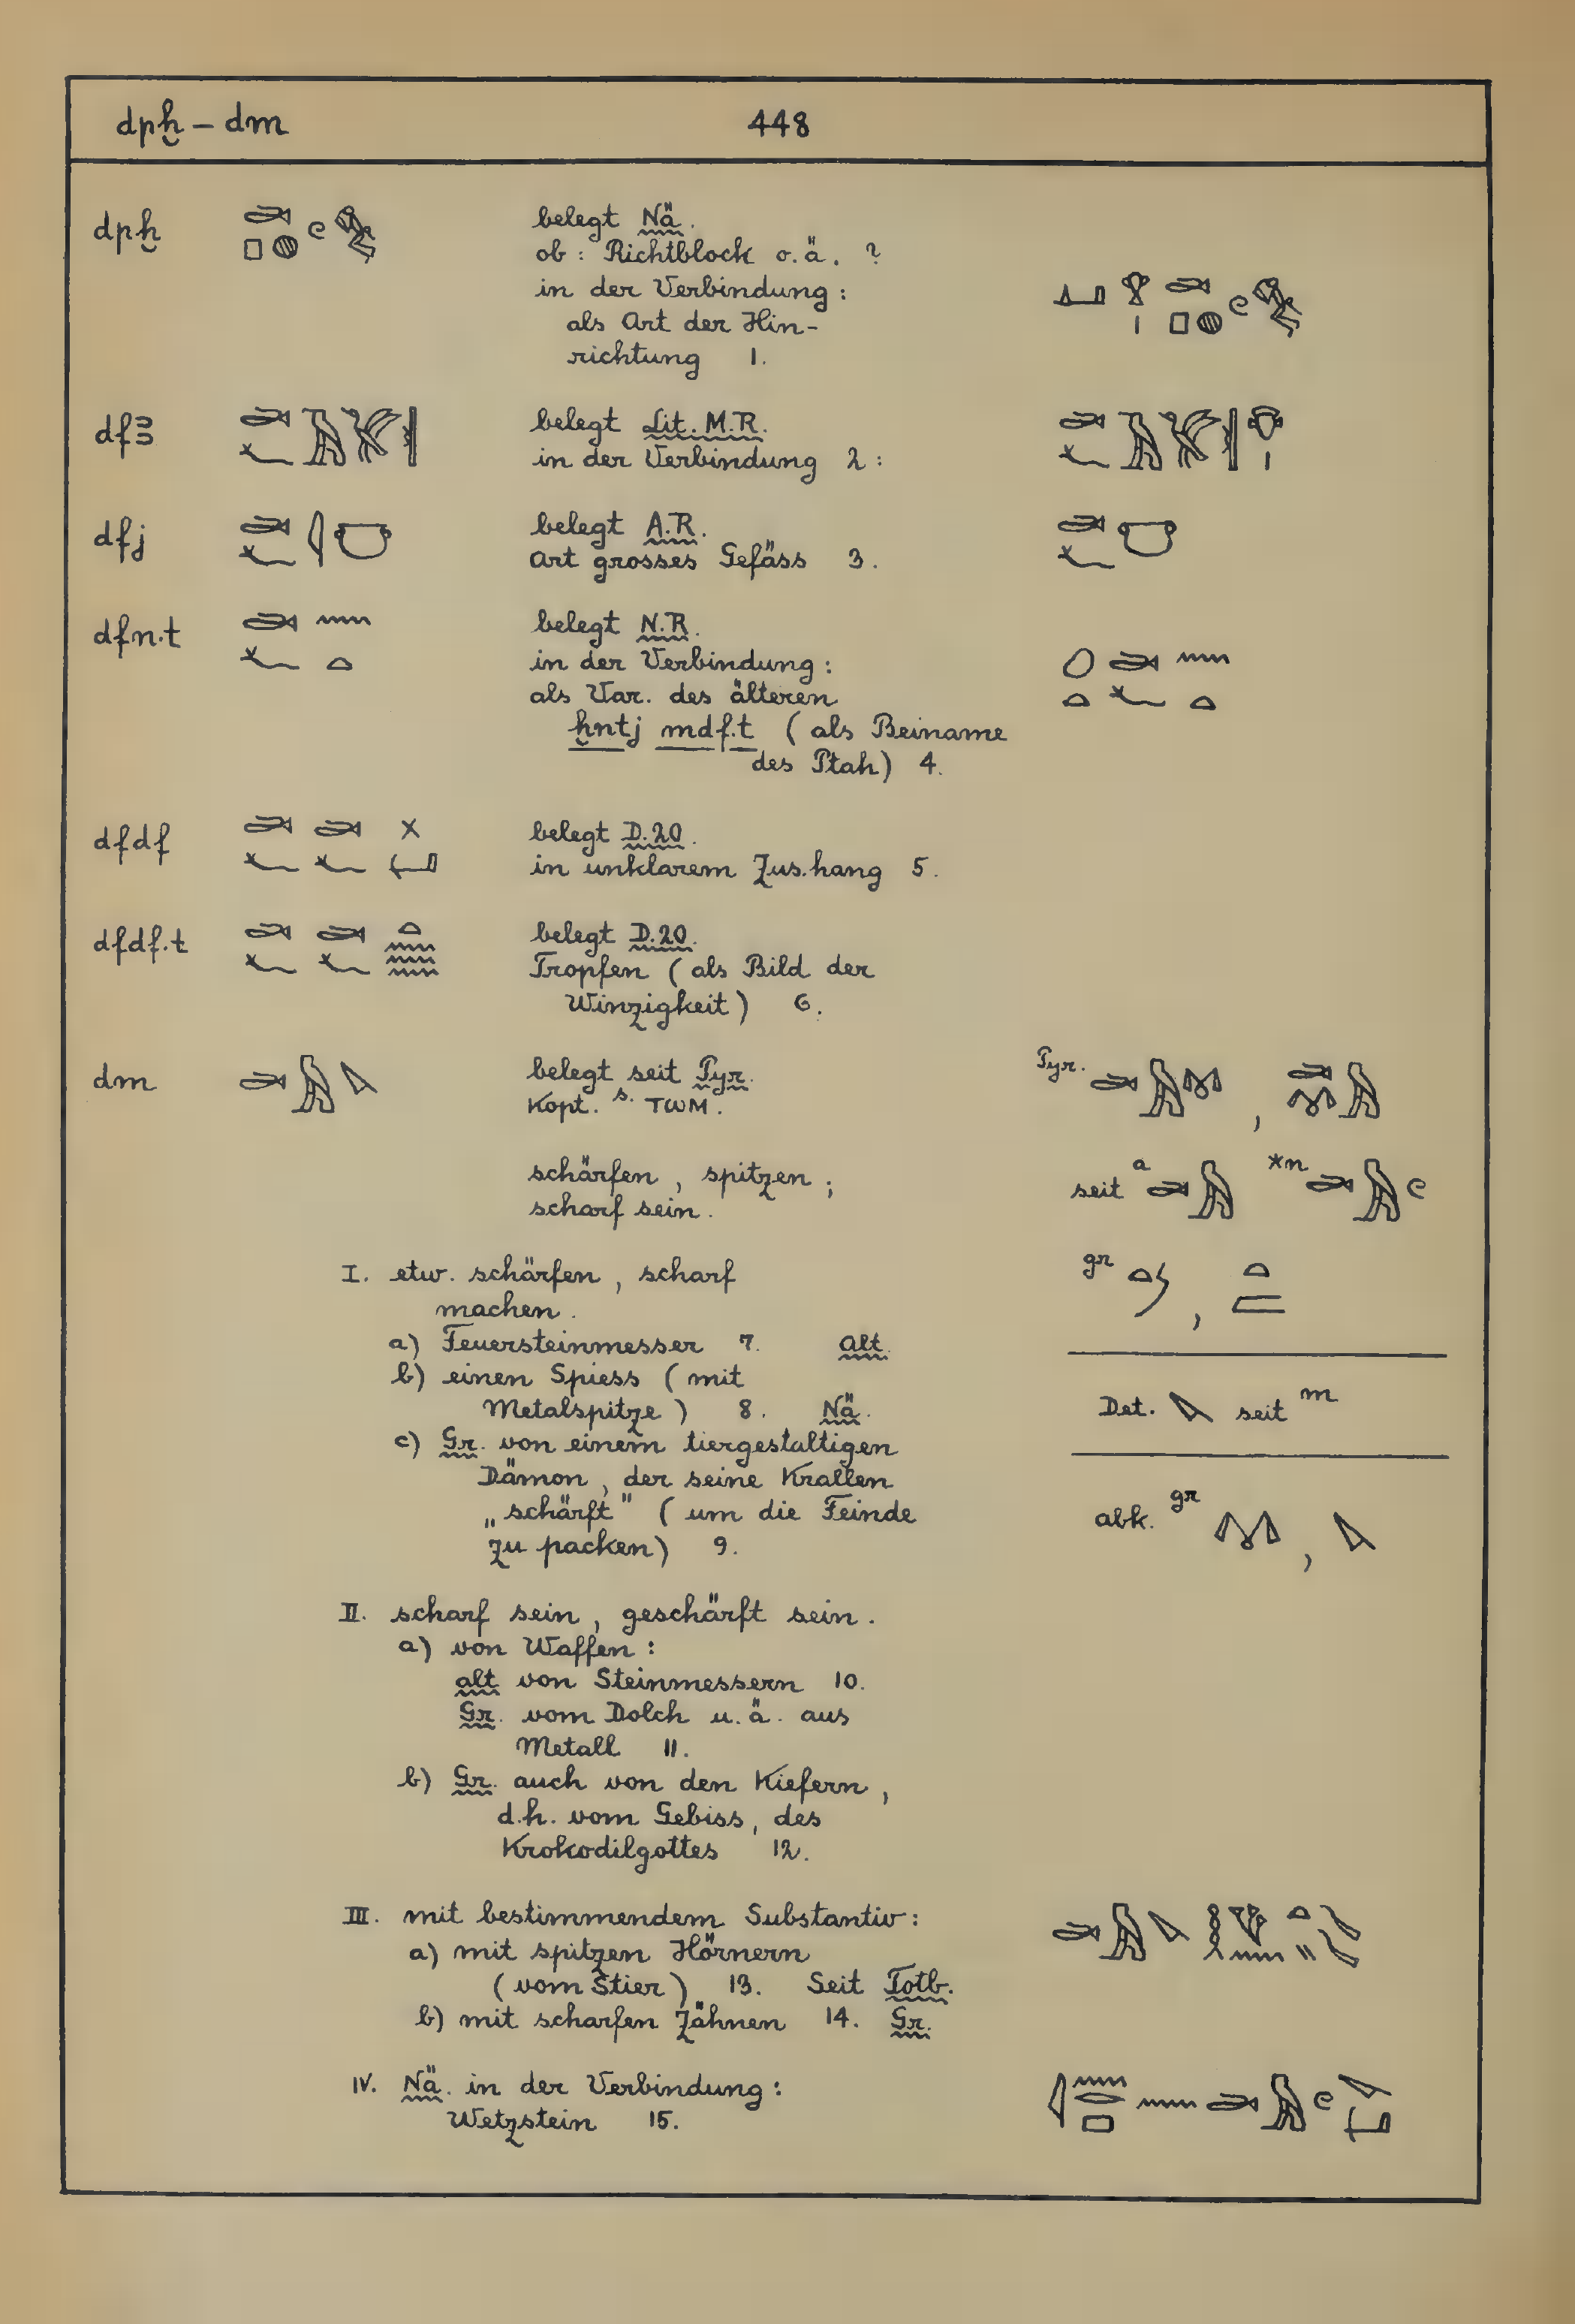 dpḫ – dm 448
dpḫ belegt Nä.
ob : Richtblock o.ä. ?
in der Verbindung :
als Art der Hin-
richtung 1.
dfꜣ belegt Lit. M.R.
in der Verbindung 2 :
dfj belegt A.R.
Art grosses Gefäss 3.
dfn.t belegt N.R.
in der Verbindung :
als Var. des älteren
ḫntj mdf.t ( als Beiname
des Ptah) 4.
dfdf belegt D.20.
in unklarem Zus.hang 5.
dfdf.t belegt D.20.
Tropfen ( als Bild der
Winzigkeit ) 6.
dm belegt seit Pyr. Pyr. ,
Kopt. S. TWM.
schärfen , spitzen ; seit a *n
scharf sein.
I. etw. schärfen , scharf gr ,
machen.
a) Feuersteinmesser 7. Alt.
b) einen Spiess ( mit
Metalspitze ) 8. Nä. Det. seit m
c) Gr. von einem tiergestaltigen
Dämon , der seine Krallen
„ schärft " ( um die Feinde abk. gr ,
zu packen) 9.
II. scharf sein , geschärft sein.
a) von Waffen :
alt von Steinmessern 10.
Gr. vom Dolch u.ä. aus
Metall 11.
b) Gr. auch von den Kiefern ,
d.h. vom Gebiss , des
Krokodilgottes 12.
III. mit bestimmendem Substantiv :
a) mit spitzen Hörnern
( vom Stier ) 13. Seit Totb.
b) mit scharfen Zähnen 14. Gr.
IV. Nä. in der Verbindung :
Wetzstein 15.